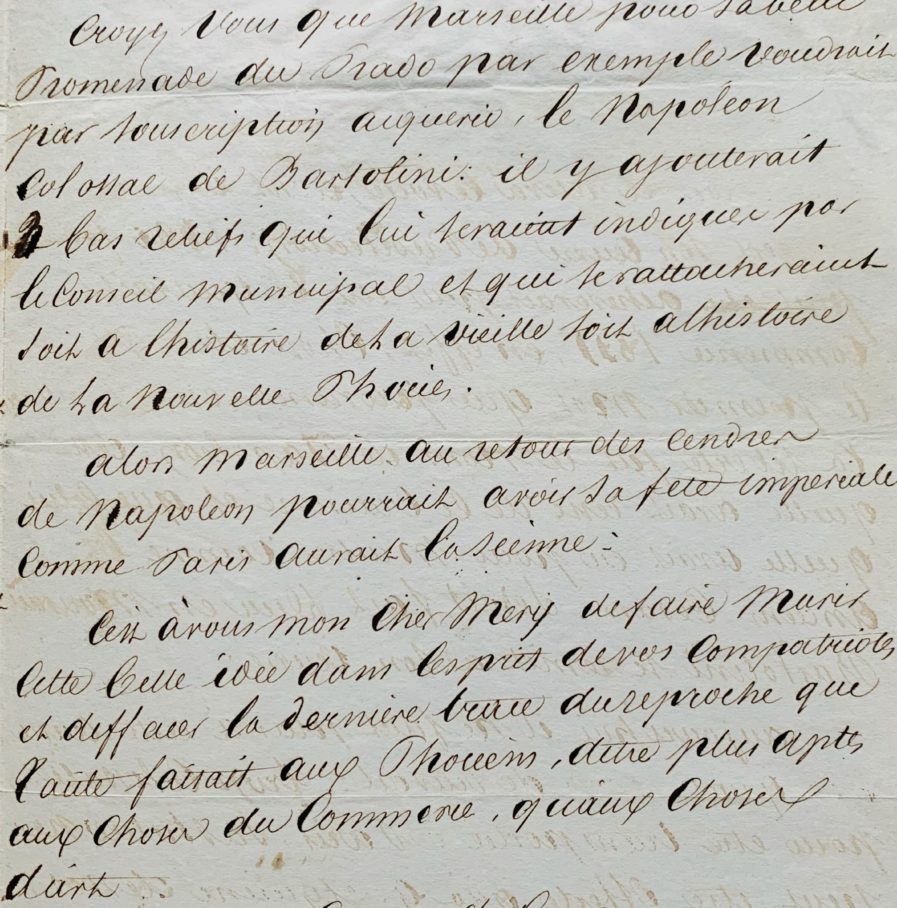 Croyez Vous que Marseille pour sa belle
Promenade du Prado par exemple voudrait
par souscription acquerir, le Napoléon
Colossal de Bartolini. il y ajouterait
bas reliefs qui lui seraient indiquer par
le Conseil municipal et qui se rattacheraient
soit a lhistoire de la vieille soit a lhistoire
de la Nouvelle Phocée.
alors Marseille au retour des Cendres
de Napoleon pourrait avoir sa fete imperiale
Comme Paris aurait la sienne.
Cest à vous mon Cher Mery de faire Murir
Cette belle idée dans lesprit de vos Compatriotes
et deffacer la dernière trace du reproche que
faisait aux Phocéens, detre plus aptes
aux Choses du Commerce, quaux Choses
dart